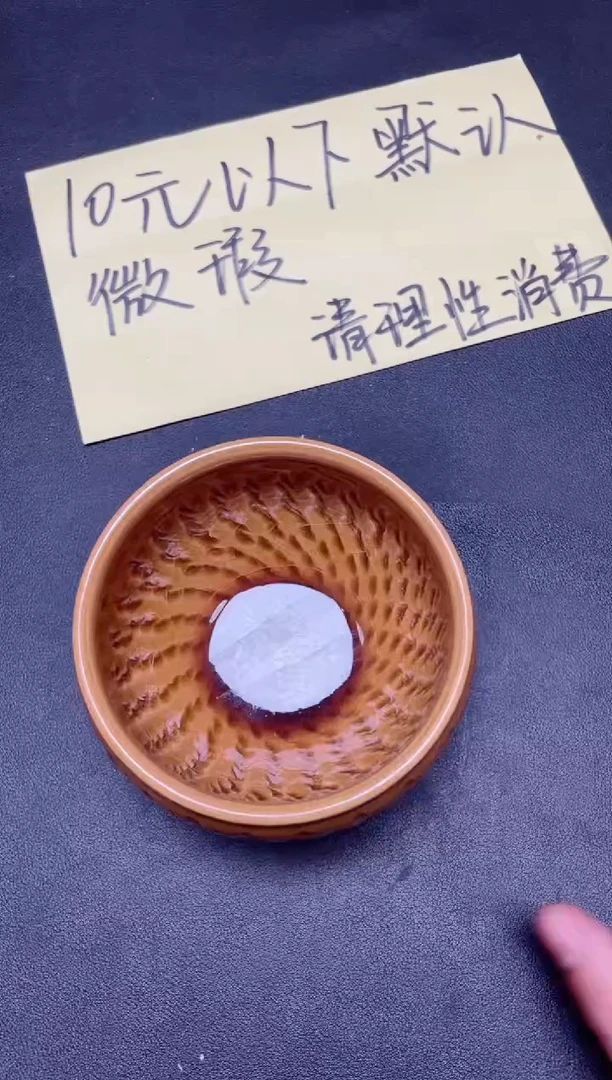 10元以下默认
微瑕
请理性消费